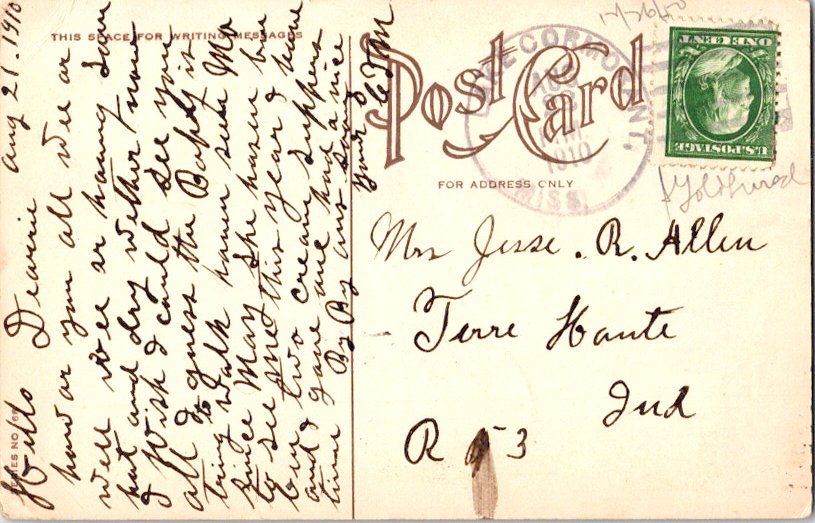 THIS SPACE FOR WRITING MESSAGES
Aug 21. 1910
Hello Dearie
how ar you all wee ar
well wee er having Som
hot and dry wether now
I Wish I could see you
all I guess the Baby is
trying to walk haven seen Ma
since May She hasen ben
to see me this year I have
ben two cream suppers
and I gave one had a nice
time By By ans soon
Yours
Post Card
FOR ADDRESS ONLY
MISS.
1910
ONE CENT
U.S. POSTAGE
Mrs Jesse. R. Allen
Terre Haute
Ind
R 3